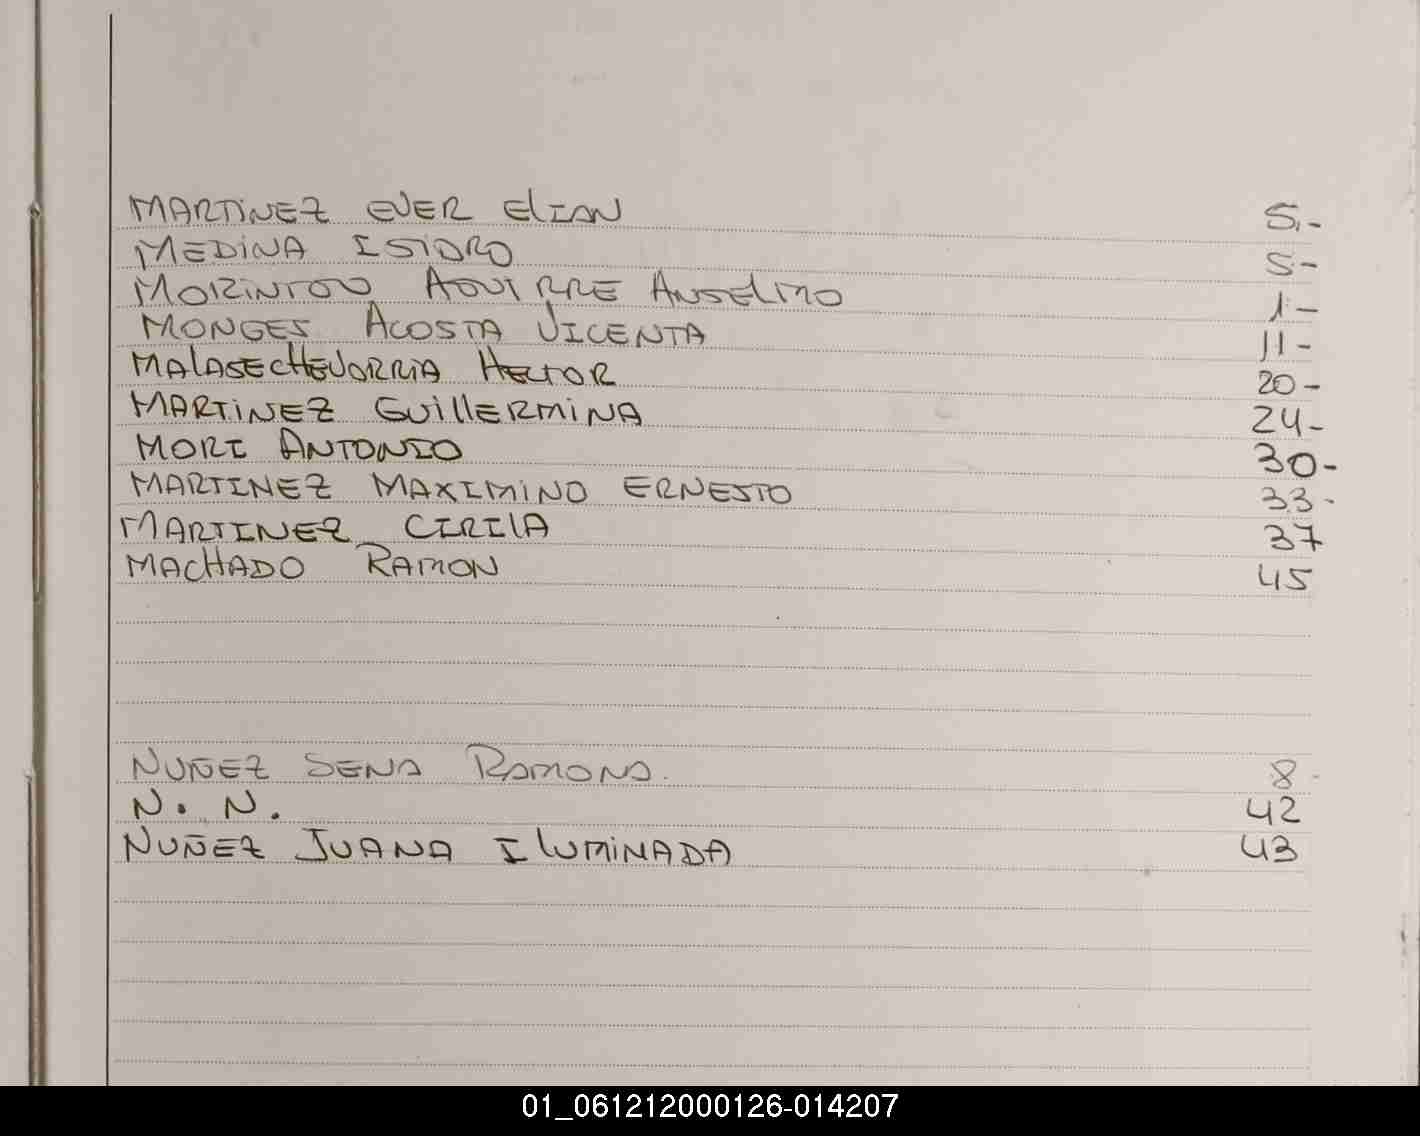 MARTINEZ EVER ELIAN 5.-
MEDINA ISIDRO 5-
MORINIGO AGUIRRE ANSELMO 1-
MONGES ACOSTA VICENTA 11-
MALASECHEVORRIA HECTOR 20-
MARTINEZ GUILLERMINA 24-
MORI ANTONIO 30-
MARTINEZ MAXIMINO ERNESTO 33-
MARTINEZ CIRILA 37
MACHADO RAMON 45
NUÑEZ SENA RAMONA. 8-
N. N. 42
NUÑEZ JUANA ILUMINADA 43
01_061212000126-014207